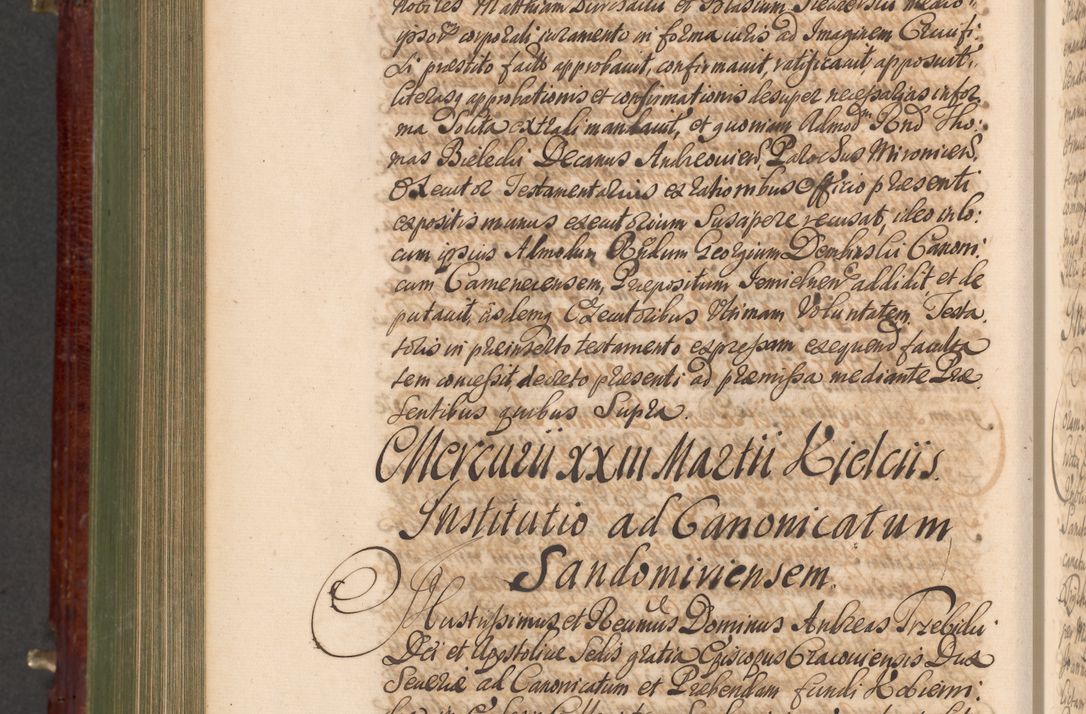 nobiles Matthiam et Blasium medio
ipsor corporali iuramento in forma iuris ad Imaginem Crucifi:
xi præstito facto approbauit, confirmauit, ratificauit, apposuit,
literasq approbationis et confirmationis desuper necessarias in for
ma Solita extradi mandauit, et quoniam Admod Rnd Tho:
mas Bielecki Decanus Andreouien, Parochus Mironicen,
Executor Testamentarius ex rationibus Officio præsenti
expositis munus executorium Suscipere recusat, ideo in lo:
cum ipsius Admodum Rndum Georgium Dembinskii Canoni:
cum Camenecensem, Præpositum Iemielnen addidit et de
putauit, iisdemq Executoribus Vltimam Voluntatem Testa
toris in præinserto testamento expressam exequend faculta
tem concessit decreto præsenti ad præmissa mediante Præ
sentibus quibus Supra.
Mercurii XXIII Martii Kielciis.
Institutio ad Canonicatum
Sandomiriensem.
Illustrissimus et Reumus Dominus Andreas Trzebicki
Dei et Apostolicæ Sedis gratia Episcopus Cracouiensis Dux
Seueriæ ad Canonicatum et Præbendam fundi Kobierni: